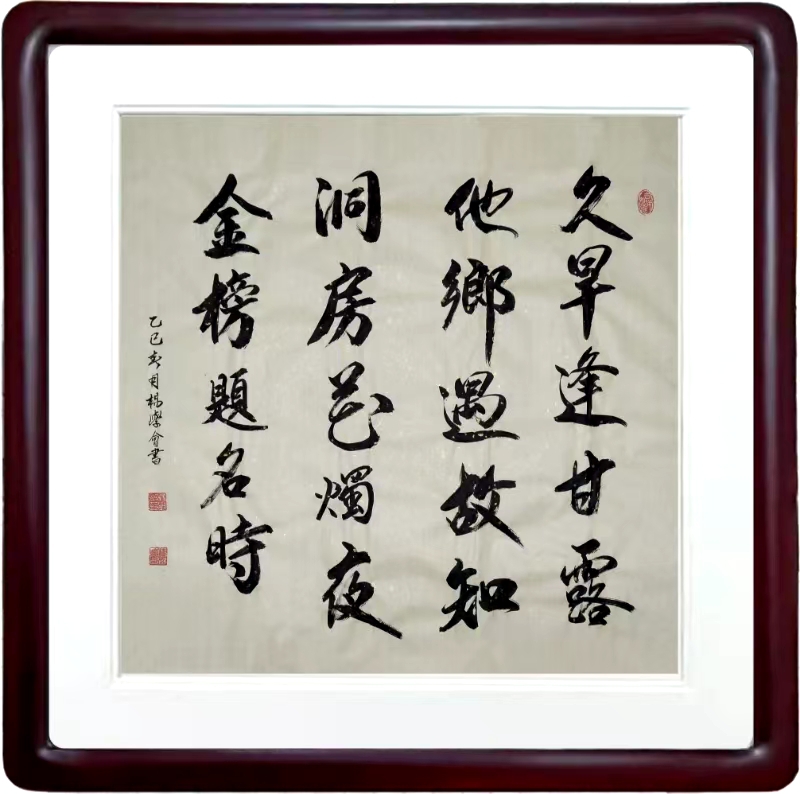 久旱逢甘露
他鄉遇故知
洞房花燭夜
金榜題名時
乙巳春月楊潔會書